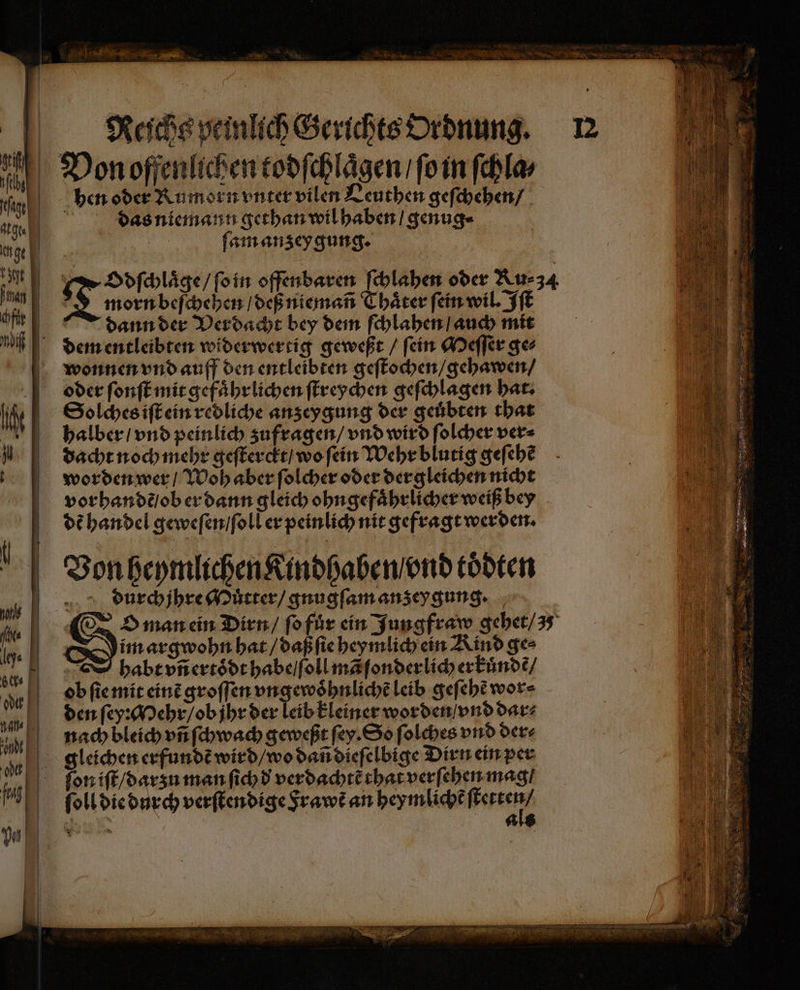 Reichs peinlich Gerichts Ordnung. 12
Von offenlichen todſchlaͤgen / ſo in ſchla⸗
hen oder Rumorn vnter vilen Leuthen geſchehen /
das niemann gethan wil haben / genug⸗
ſam anzeygung.
TOdſchlaͤge / ſo in offenbaren ſchlahen oder Ru⸗ 34
morn beſchehen / deß niemañ Thaͤter ſein wil. Jſt
dann der Verdacht bey dem ſchlahen / auch mit
dem entleibten widerwertig geweßt / ſein Meſſer ge⸗
wonnen vnd auff den entleibten geſtochen / gehawen /
oder ſonſt mit gefaͤhrlichen ſtreychen geſchlagen hat.
Solches iſt ein redliche anzeygung der geuͤbten that
halber / vnd peinlich zufragen / vnd wird ſolcher ver⸗
dacht noch mehr geſterckt / wo ſein Wehr blutig geſehẽ
worden wer / Woh aber ſolcher oder dergleichen nicht
vorhandẽ / ob er dann gleich ohngefaͤhrlicher weiß bey
dẽ handel geweſen / ſoll er peinlich nit gefragt werden.
Von heymlichen Kindhaben / vnd toͤdten
durch jhre Muͤtter / gnugſam anzeygung.
SO man ein Dirn / ſo fuͤr ein Jungfraw gehet / 35
im argwohn hat / daß ſie heymlich ein Kind ge⸗
habt vñ ertoͤdt habe / ſoll mã ſonderlich erkuͤndẽ /
ob ſie mit einẽ groſſen vngewoͤhnlichẽ leib geſehẽ wor⸗
den ſey: Mehr / ob jhr der leib kleiner worden / vnd dar⸗
nach bleich vñ ſchwach geweßt ſey. So ſolches vnd der⸗
gleichen erfundẽ wird / wo dañ dieſelbige Dirn ein per
ſon iſt / darzu man ſich d' verdachtẽ that verſehen mag /
ſoll die durch verſtendige Frawẽ an heymlichẽ ſtetten /
als